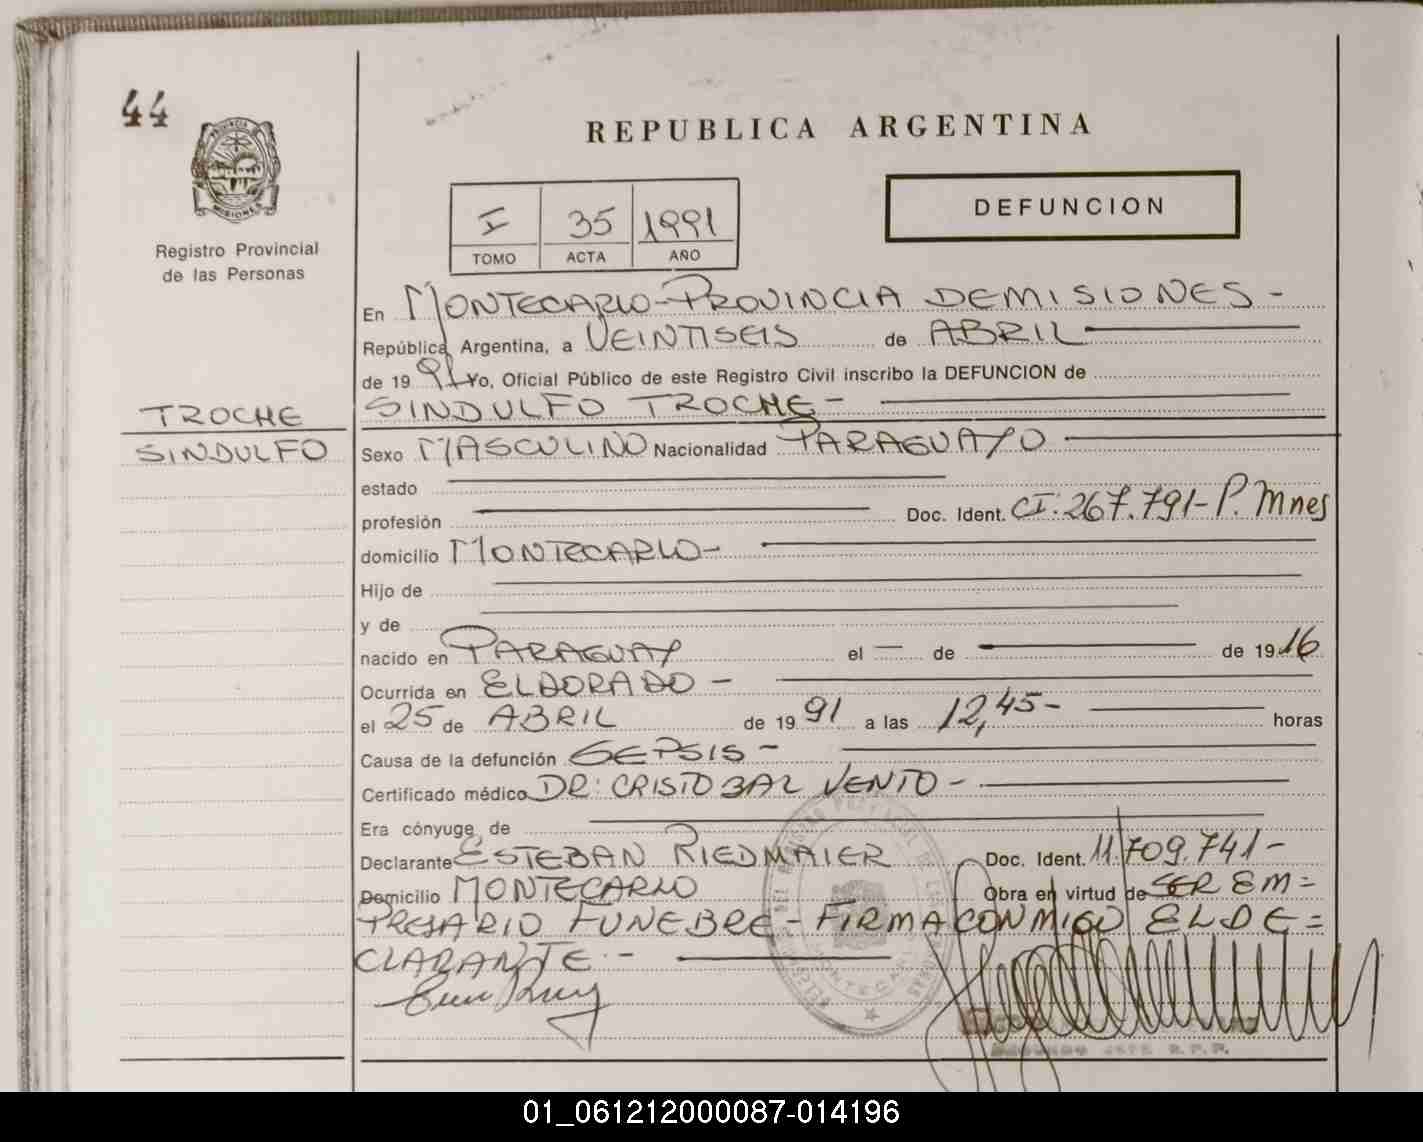 44
PROVINCIA DE
MISIONES
Registro Provincial
de las Personas
REPUBLICA ARGENTINA
I 35 1991
TOMO ACTA AÑO
DEFUNCION
En MONTECARLO-PROVINCIA DE MISIONES-
República Argentina, a VEINTISEIS de ABRIL
de 1991 Yo, Oficial Público de este Registro Civil inscribo la DEFUNCION de
TROCHE
SINDULFO
SINDULFO TROCHE-
Sexo MASCULINO Nacionalidad PARAGUAYO
estado
profesión Doc. Ident. CI: 267.791-P. Mnes
domicilio MONTECARLO-
Hijo de
y de
nacido en PARAGUAY el — de — de 1916
Ocurrida en ELDORADO -
el 25 de ABRIL de 1991 a las 12,45- horas
Causa de la defunción SEPSIS-
Certificado médico DR: CRISTOBAL VENTO-
Era cónyuge de
Declarante ESTEBAN RIEDMAIER Doc. Ident. 11.709.741-
Domicilio MONTECARLO Obra en virtud de SER EM=
PRESARIO FUNEBRE- FIRMA CONMIGO EL DE=
CLARANTE.-
01_061212000087-014196